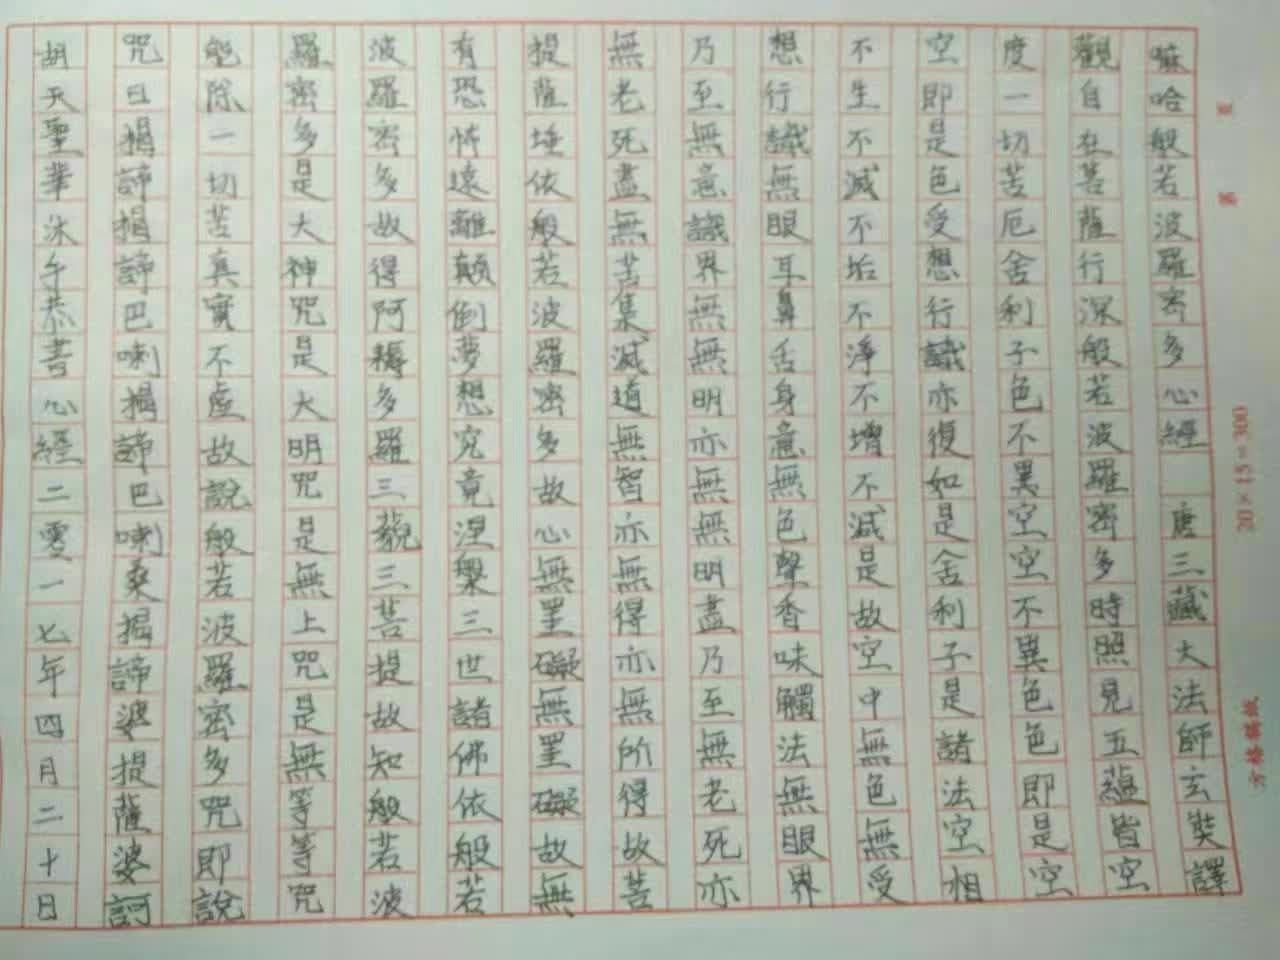 嘛哈般若波羅密多心經 唐三藏大法師玄奘譯
觀自在菩薩行深般若波羅密多時照見五蘊皆空
度一切苦厄舍利子色不異空空不異色色即是空
空即是色受想行識亦復如是舍利子是諸法空相
不生不滅不垢不淨不增不減是故空中無色無受
想行識無眼耳鼻舌身意無色聲香味觸法無眼界
乃至無意識界無無明亦無無明盡乃至無老死亦
無老死盡無苦集滅道無智亦無得亦無所得故菩
提薩埵依般若波羅密多故心無罣礙無罣礙故無
有恐怖遠離顛倒夢想究竟涅槃三世諸佛依般若
波羅密多故得阿耨多羅三藐三菩提故知般若波
羅密多是大神咒是大明咒是無上咒是無等等咒
能除一切苦真實不虛故說般若波羅密多咒即說
咒曰揭諦揭諦巴喇揭諦巴喇桑揭諦婆提薩婆訶
胡天聖華沐手恭書心經二零一七年四月二十日
20×15=300